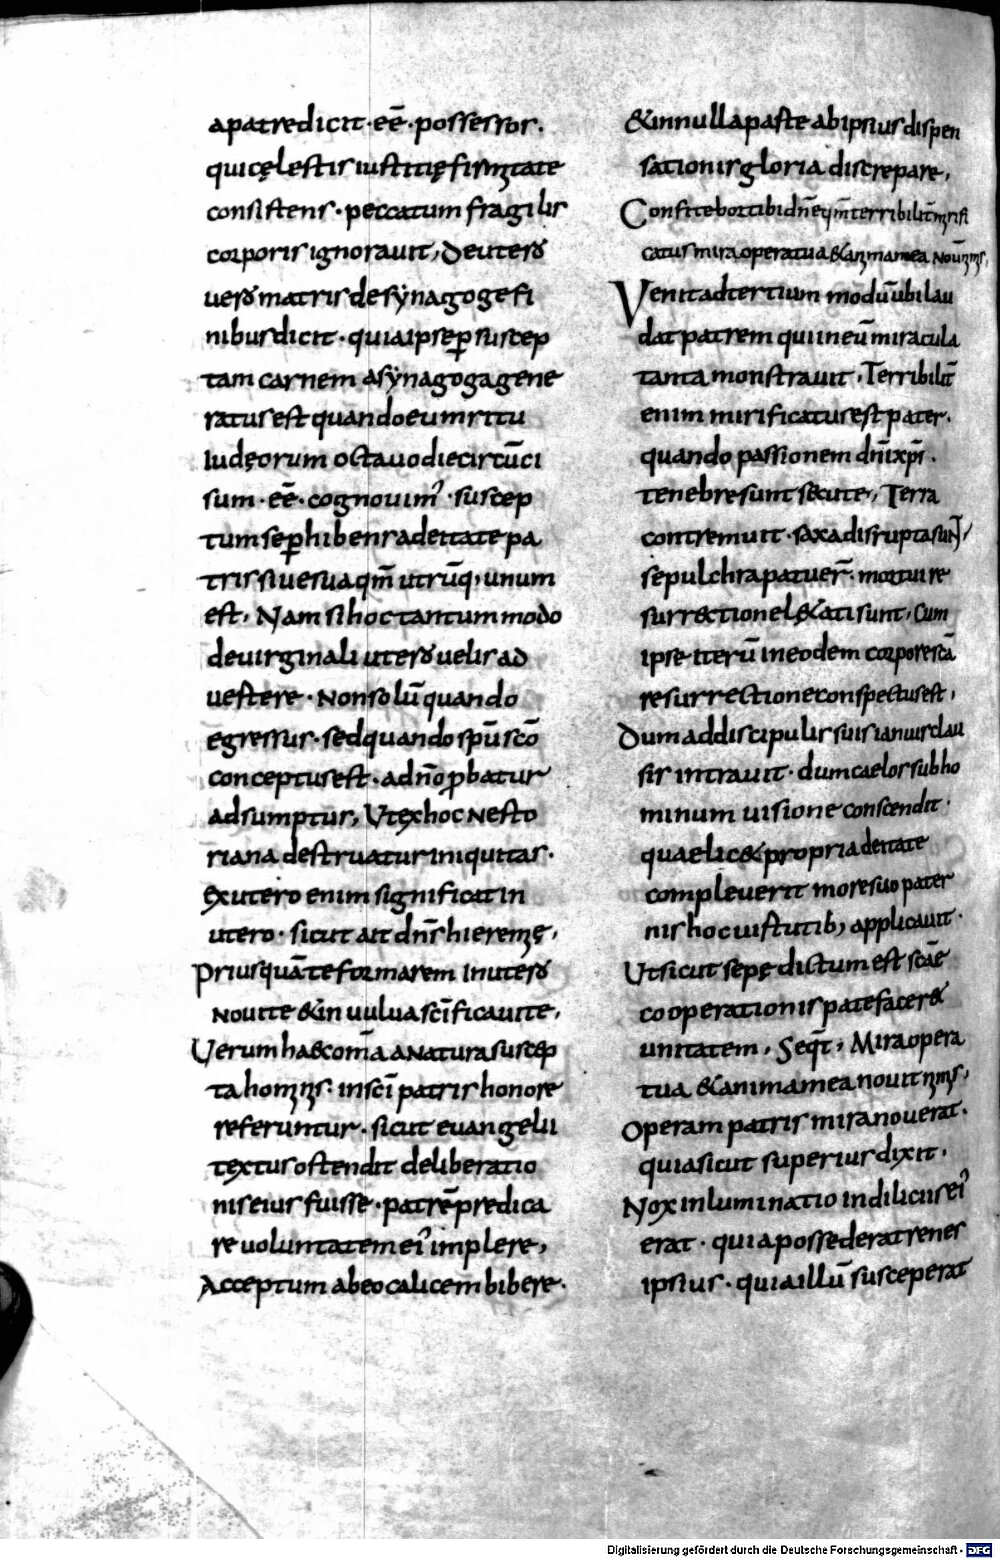 apatredicit · eē · possessor ·
qui cęlestis iustitię firmitate
consistens · peccatum fragilis
corporis ignorauit, De utero
uero matris de synagoge fi
nibus dicit · quia ipse ꝑ suscep
tam carnem asynagoga gene
ratus est quando eum ritu
Iudęorum octauo die circūci
sum · eē · cognouim' · suscep
tum se ꝑhibens a deitate pa
tris siue sua qm̄ utrūq; unum
est, Nam si hoc tantum modo
de uirginali utero uelis ad
uertere · Non solū quando
egressus · sed quando spū scō
conceptus est · ad nō ꝓbatur
adsumptur, Ut ex hoc Nesto
riana destruatur iniquitas ·
ex utero enim significat in
utero · sicut ait dn̄s hieremię,
Priusquā te formarem in utero
noui te & in uulua scīficaui te,
Uerum haec om̄ia a natura suscep
ta hominis · in scī patris honore
referuntur · sicut euangelii
textus ostendit deliberatio
nis eius fuisse · patrē predica
re uoluntatem ei' implere,
Acceptum ab eo calicem bibere ·
& in nulla parte ab ipsius dispen
sationis gloria discrepare,
Confitebor tibi dn̄e qm̄ terribilit̄ mirifi
catus mira opera tua & anima mea nouit nimis,
Uenit ad tertium modū ubi lau
dat patrem qui in eū miracula
tanta monstrauit · Terribilit̄
enim mirificatus est pater ·
quando passionem dn̄i xp̄i ·
tenebre sunt secute, Terra
contremuit · saxa disrupta sunt,
sepulchra patuer̄ · mortui re
surrectione lętati sunt, Cum
ipse iterū in eodem corpore scā
resurrectione conspectus est,
Dum ad discipulis suis ianuis clau
sis intrauit · dum caelos sub ho
minum uisione conscendit ·
quae licet propria deitate
compleuerit more suo pater
nis hoc uirtutib; applicauit ·
Ut sicut sepę dictum est scāe
cooperationis patefaceret
unitatem, Seqt̄, Mira opera
tua & anima mea nouit nimis,
Operam patris mira nouerat ·
quia sicut superius dixit ·
Nox inluminatio in diliciis ei'
erat · quia possederat renes
ipsius · quia illū susceperat
Digitalisierung gefördert durch die Deutsche Forschungsgemeinschaft - DFG